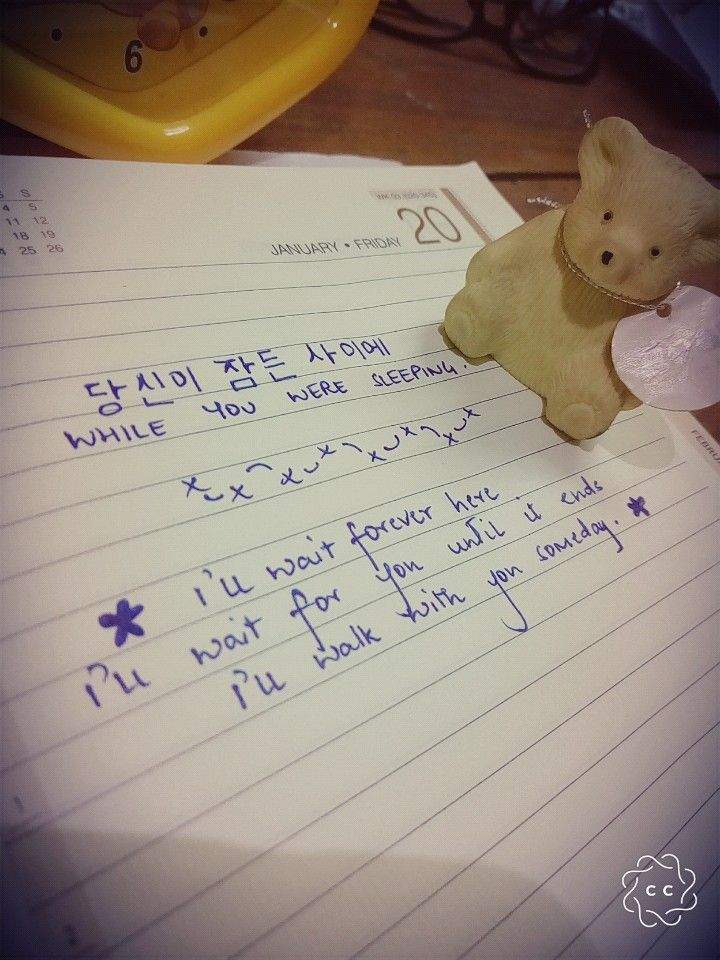 6
S
4 5
11 12
18 19
25 26
20
JANUARY • FRIDAY
당신이 잠든 사이에
WHILE YOU WERE SLEEPING.
i'll wait forever here
i'll wait for you until it ends
i'll walk with you someday.
FEBRU
CC